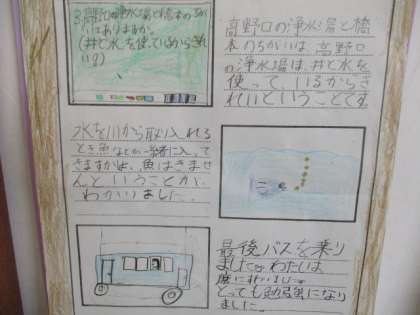 高野口の浄水場と橋本のちが
いはありますか。
(井と水を使っているからきれ
い?)
高野口の浄水場と橋
本のちがいは、高野口
の浄水場は、井と水を
使って、いるからき
れいということです。
水を川から取り入れる
とき魚などが一緒に入って
きますがは、魚はきませ
んということが、
わかりました。
最後バスを乗り
ました。わたしは
とっても勉強になり
ました。